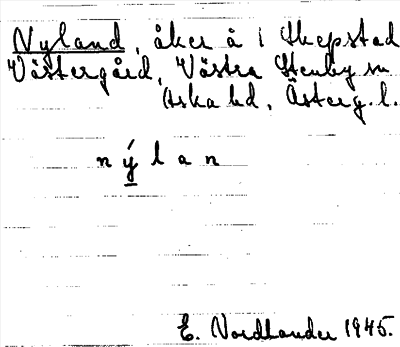 Nyland, åker å 1 Skepstad
Västergård, Västra Stenby sn
Aska hd, Österg. l.
nýlan
E. Nordlander 1945.